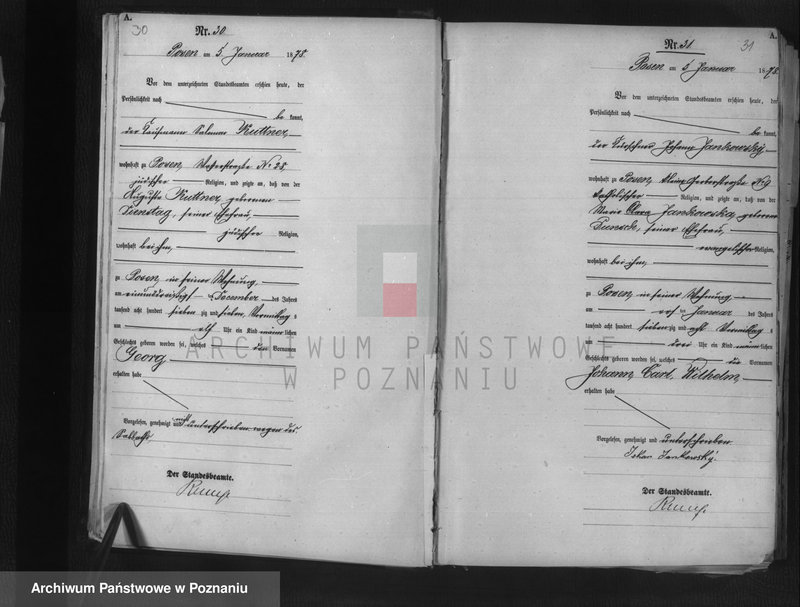 A.
30
Nr. 30
Posen am 5. Januar 1878.
Vor dem unterzeichneten Standesbeamten erschien heute, der
Persönlichkeit nach
be kannt,
der Kaufmann Salomon Kuttner,
wohnhaft zu Posen, Wasserstraße No 28,
jüdischer Religion, und zeigte an, daß von der
Auguste Kuttner geborenen
Dienstag, seiner Ehefrau,
jüdischer Religion,
wohnhaft bei ihm,
zu Posen, in seiner Wohnung,
am einunddreißigsten December des Jahres
tausend acht hundert siebenzig und sieben, Vormittag s
um elf Uhr ein Kind männlichen
Geschlechts geboren worden sei, welches den Vornamen
Georg
erhalten habe
Vorgelesen, genehmigt und nicht unterschrieben wegen des
Sabbaths.
Der Standesbeamte.
A.
31
Nr. 31
Posen am 5. Januar 1878.
Vor dem unterzeichneten Standesbeamten erschien heute, der
Persönlichkeit nach
be kannt,
der Johann Jankowsky,
wohnhaft zu Posen, kleine Gerberstraße No 9
katholischer Religion, und zeigte an, daß von der
Marie Clara Jankowska geborenen
seiner Ehefrau,
evangelischer Religion,
wohnhaft bei ihm,
zu Posen, in seiner Wohnung,
am ersten Januar des Jahres
tausend acht hundert siebenzig und acht Vormittag s
um drei Uhr ein Kind männlichen
Geschlechts geboren worden sei, welches die Vornamen
Johann, Carl, Wilhelm,
erhalten habe
Vorgelesen, genehmigt und unterschrieben
Jankowský.
Der Standesbeamte.
ARCHIWUM PAŃSTWOWE
W POZNANIU
Archiwum Państwowe w Poznaniu